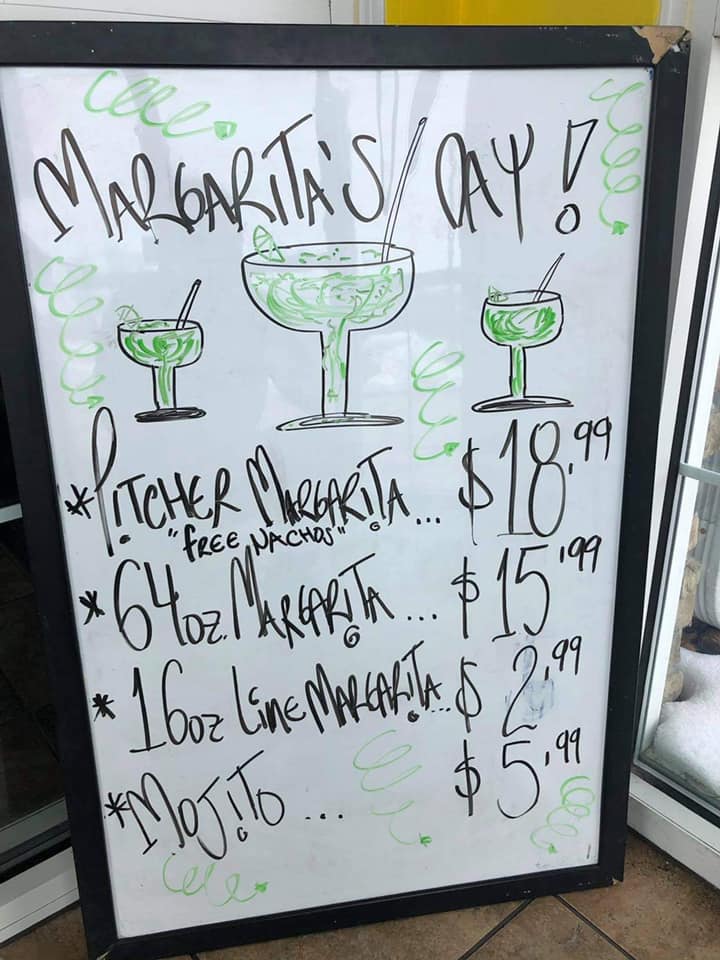 MARGARITA'S DAY!
*PITCHER MARGARITA... $18.99
"FREE NACHOS"
*64oz. MARGARITA... $15.99
*16oz Lime MARGARITA.. $2.99
*MOJITO ... $5.99